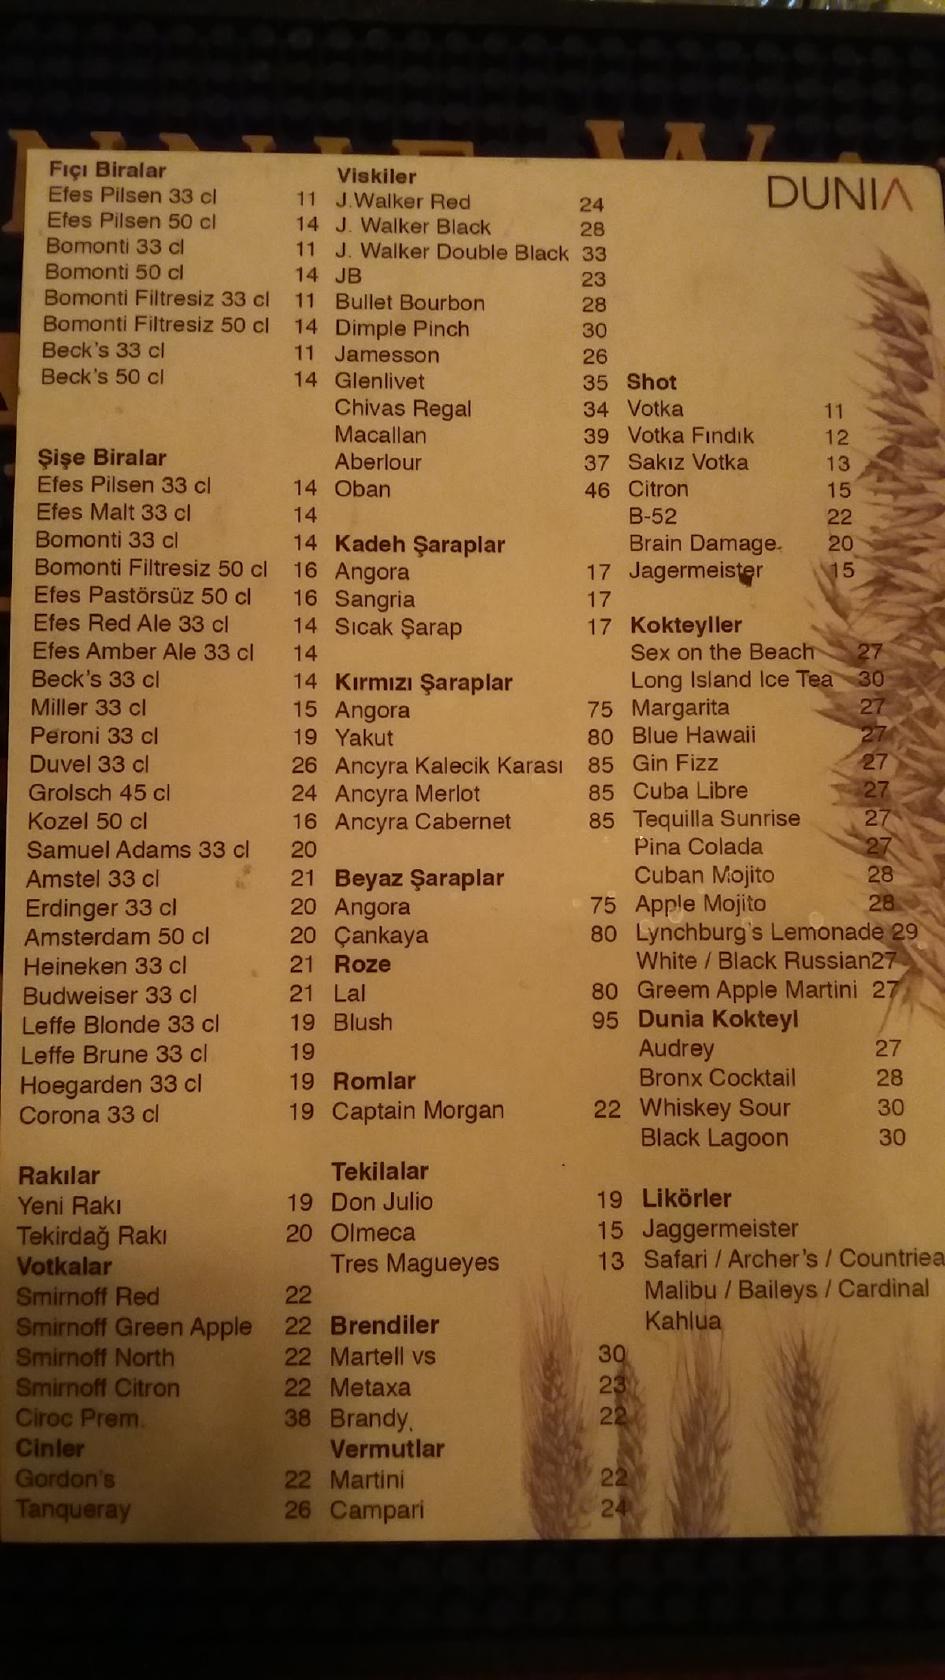 DUNIA
Fıçı Biralar
Efes Pilsen 33 cl 11
Efes Pilsen 50 cl 14
Bomonti 33 cl 11
Bomonti 50 cl 14
Bomonti Filtresiz 33 cl 11
Bomonti Filtresiz 50 cl 14
Beck's 33 cl 11
Beck's 50 cl 14
Şişe Biralar
Efes Pilsen 33 cl 14
Efes Malt 33 cl 14
Bomonti 33 cl 14
Bomonti Filtresiz 50 cl 16
Efes Pastörsüz 50 cl 16
Efes Red Ale 33 cl 14
Efes Amber Ale 33 cl 14
Beck's 33 cl 14
Miller 33 cl 15
Peroni 33 cl 19
Duvel 33 cl 26
Grolsch 45 cl 24
Kozel 50 cl 16
Samuel Adams 33 cl 20
Amstel 33 cl 21
Erdinger 33 cl 20
Amsterdam 50 cl 20
Heineken 33 cl 21
Budweiser 33 cl 21
Leffe Blonde 33 cl 19
Leffe Brune 33 cl 19
Hoegarden 33 cl 19
Corona 33 cl 19
Rakılar
Yeni Rakı 19
Tekirdağ Rakı 20
Votkalar
Smirnoff Red 22
Smirnoff Green Apple 22
Smirnoff North 22
Smirnoff Citron 22
Ciroc Prem. 38
Cinler
Gordon's 22
Tanqueray 26
Viskiler
J.Walker Red 24
J. Walker Black 28
J. Walker Double Black 33
JB 23
Bullet Bourbon 28
Dimple Pinch 30
Jamesson 26
Glenlivet 35
Chivas Regal 34
Macallan 39
Aberlour 37
Oban 46
Kadeh Şaraplar
Angora 17
Sangria 17
Sıcak Şarap 17
Kırmızı Şaraplar
Angora 75
Yakut 80
Ancyra Kalecik Karası 85
Ancyra Merlot 85
Ancyra Cabernet 85
Beyaz Şaraplar
Angora 75
Çankaya 80
Roze
Lal 80
Blush 95
Romlar
Captain Morgan 22
Tekilalar
Don Julio 19
Olmeca 15
Tres Magueyes 13
Brendiler
Martell vs 30
Metaxa 23
Brandy 22
Vermutlar
Martini 22
Campari 24
Shot
Votka 11
Votka Fındık 12
Sakız Votka 13
Citron 15
B-52 22
Brain Damage 20
Jagermeister 15
Kokteyller
Sex on the Beach 27
Long Island Ice Tea 30
Margarita 27
Blue Hawaii 27
Gin Fizz 27
Cuba Libre 27
Tequilla Sunrise 27
Pina Colada 27
Cuban Mojito 28
Apple Mojito 28
Lynchburg's Lemonade 29
White / Black Russian27
Greem Apple Martini 27
Dunia Kokteyl
Audrey 27
Bronx Cocktail 28
Whiskey Sour 30
Black Lagoon 30
Likörler
Jaggermeister
Safari / Archer's / Countriea
Malibu / Baileys / Cardinal
Kahlua